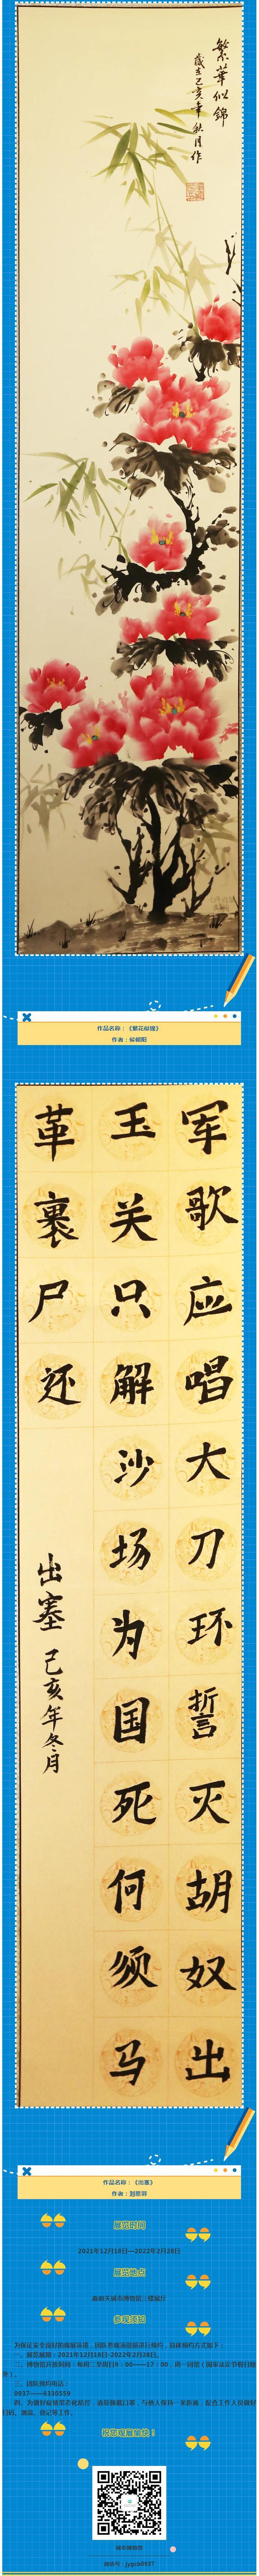 繁華似錦
歲在己亥年秋月作
作品名称：《繁花似锦》
军歌应唱大刀环誓灭胡奴出
玉关只解沙场为国死何须马
革裹尸还
出塞 己亥年冬月
作品名称：《出塞》
展览时间
2021年12月18日—2022年2月28日
展览地点
嘉峪关城市博物馆三楼展厅
参观须知
一、展览展期：2021年12月18日-2022年2月28日。
三、团队预约电话：
0937——6330559
祝您观展愉快！
城市博物馆
微信号：jygcb0937